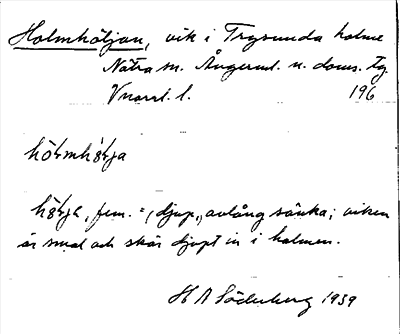 Holmhöljan, vik i Trysunda holme
Nätra sn. Ångerml. n. doms. tg.
Vnorrl. l. 196
höɫmhöɫja
höɫja, fem. = "djup, avlång sänka; viken
är smal och skär djupt in i holmen.
H A Söderberg 1939